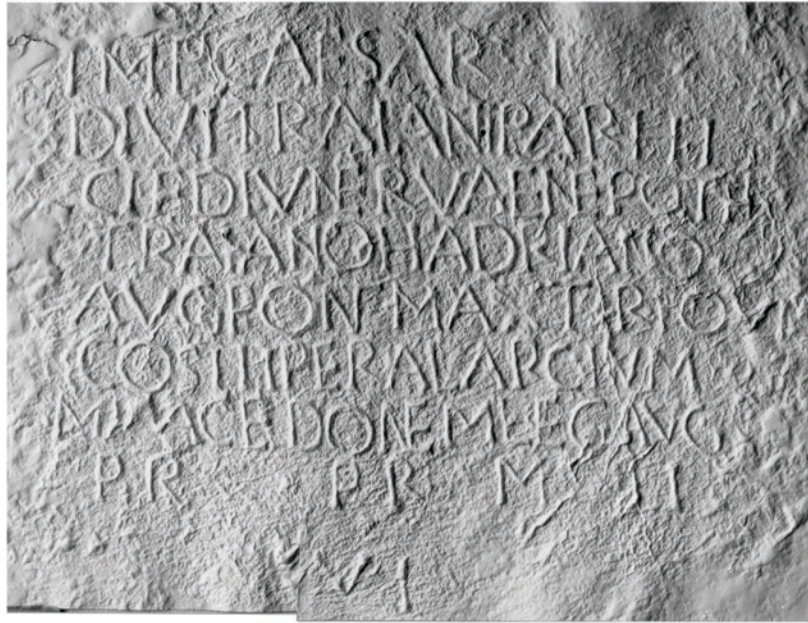 IMP CAESAR I
DIVI TRAIANI PARTHI
CI F DIVI NERVAE NEPOTI
TRAIANO HADRIANO
AVG PON MAX TR POT
COS III PER A LARCIVM
MACEDONEM LEG AVG
PR PR M II
VI